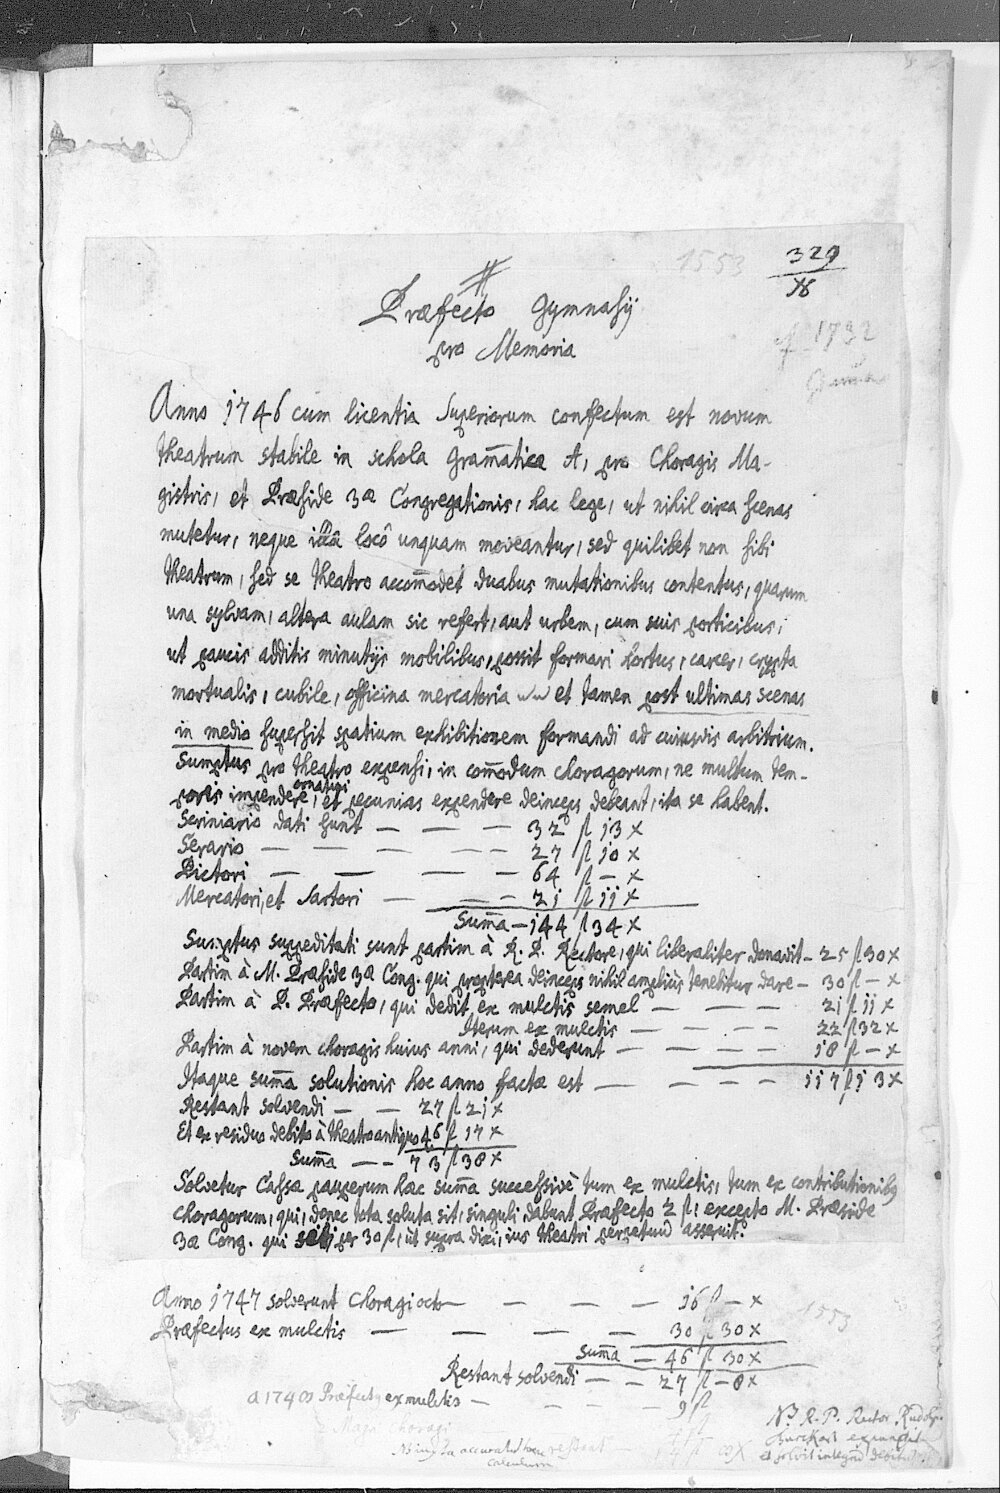 1553
329
X6
Præfecto Gymnasij
pro Memoria
1732
Anno 1746 cum licentia Superiorum confectum est novum
theatrum stabile in schola Gram̄aticæ A, pro Choragis Ma-
gistris, et Præside 3æ Congregationis, hac lege, ut nihil circa scenas
mutetur, neque illa locô unquam moveantur, sed quilibet non sibi
theatrum, sed se theatro accom̄odet duabus mutationibus contentus, quarum
una sylvam, altera aulam sic refert, aut urbem, cum suis porticibus,
ut paucis additis minutijs mobilibus, possit formari hortus, carcer, crypta
mortualis, cubile, officina mercatoria et tamen post ultimas scenas
in medio supersit spatium exhibitionem formandi ad cuiusvis arbitrium.
Sumptus pro theatro expensi, in com̄odum choragorum, ne multum tem-
poris impendere, et pecunias expendere deinceps debeant, ita se habent.
Scriniario dati sunt — — — 32 fl 13 x
Serario — — — — — 27 fl 10 x
Pictori — — — — 64 fl — x
Mercatori, et Sartori — — — 21 fl 11 x
Sum̄a — 144 fl 34 x
Sumptus suppeditati sunt partim à R. P. Rectore, qui liberaliter donavit — 25 fl 30 x
Partim à M. Præside 3æ Cong. qui propterea deinceps nihil ampliùs tenebitur dare — 30 fl — x
Partim à P. Præfecto, qui dedit ex mulctis semel — — — 21 fl 11 x
Iterum ex mulctis — — — — 22 fl 32 x
Partim à novem choragis huius anni, qui dederunt — — — — 18 fl — x
Itaque sum̄a solutionis hoc anno factæ est — — — — 117 fl 13 x
Restant solvendi — — 27 fl 21 x
Et ex residuo debito à theatro antiquo 46 fl 17 x
Sum̄a — — 73 fl 38 x
Solvetur Cassæ pauperum hac sum̄a successivè tum ex mulctis, tum ex contributionibus
choragorum, qui, donec tota soluta sit, singuli dabunt Præfecto 2 fl, excepto M. Præside
3æ Cong. qui sibi per 30 fl, ut supra dixi, ius theatri perpetuū asseruit.
Anno 1747 solverunt choragi octo — — — — 16 fl — x
1553
Præfectus ex mulctis — — — — 30 fl 30 x
Sum̄a — 46 fl 30 x
Restant solvendi — — 27 fl — 8 x
Præfect9 ex mulctis — — — — 9 fl
choragi
restant
calculum
NB. R. P. Rector Rudolp.
Burckart
solvit integrū debitū